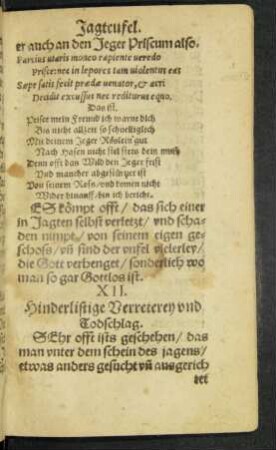 Jagteufel.
er auch an den Jeger Priscum also.
Parcius utaris moneo rapiente veredo
Prisce: nec in lepores tam violentus eas
Sæpe satis fecit prædæ venator, & acri
Decidit excussus nec rediturus equo.
Das ist.
Prisce mein Freund ich warne dich
Bis nicht allzeit so schoelliglich
Mit deinem Jeger Rößlein gut
Nach Hasen nicht
Denn offt das Wild den Jeger frist
Und mancher abgestürtzet ist
Von seinem Roß/ und komen nicht
Wider hinauff/ bin ich bericht.
ES kömpt offt/ das sich einer
in Jagten selbst verletzt/ vnd scha-
den nimpt/ von seinem eigen ge-
schoß/ vñ sind der vnfel vielerley/
die Gott verhenget/ sonderlich wo
man so gar Gottlos ist.
XII.
Hinderlistige Verreterey vnd
Todschlag.
SEhr offt ists geschehen/ das
man vnter dem schein des jagens/
etwas anders gesucht vñ ausgerich
tet